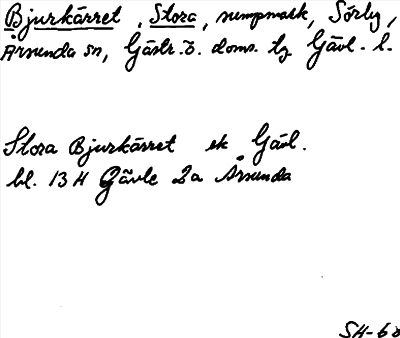 Bjurkärret, Stora, sumpmark, Sörby,
Årsunda sn, Gästr. ö. doms. tg Gävl. l.
Stora Bjurkärret ek Gävl.
bl. 13 H Gävle 2a Årsunda
SH-68